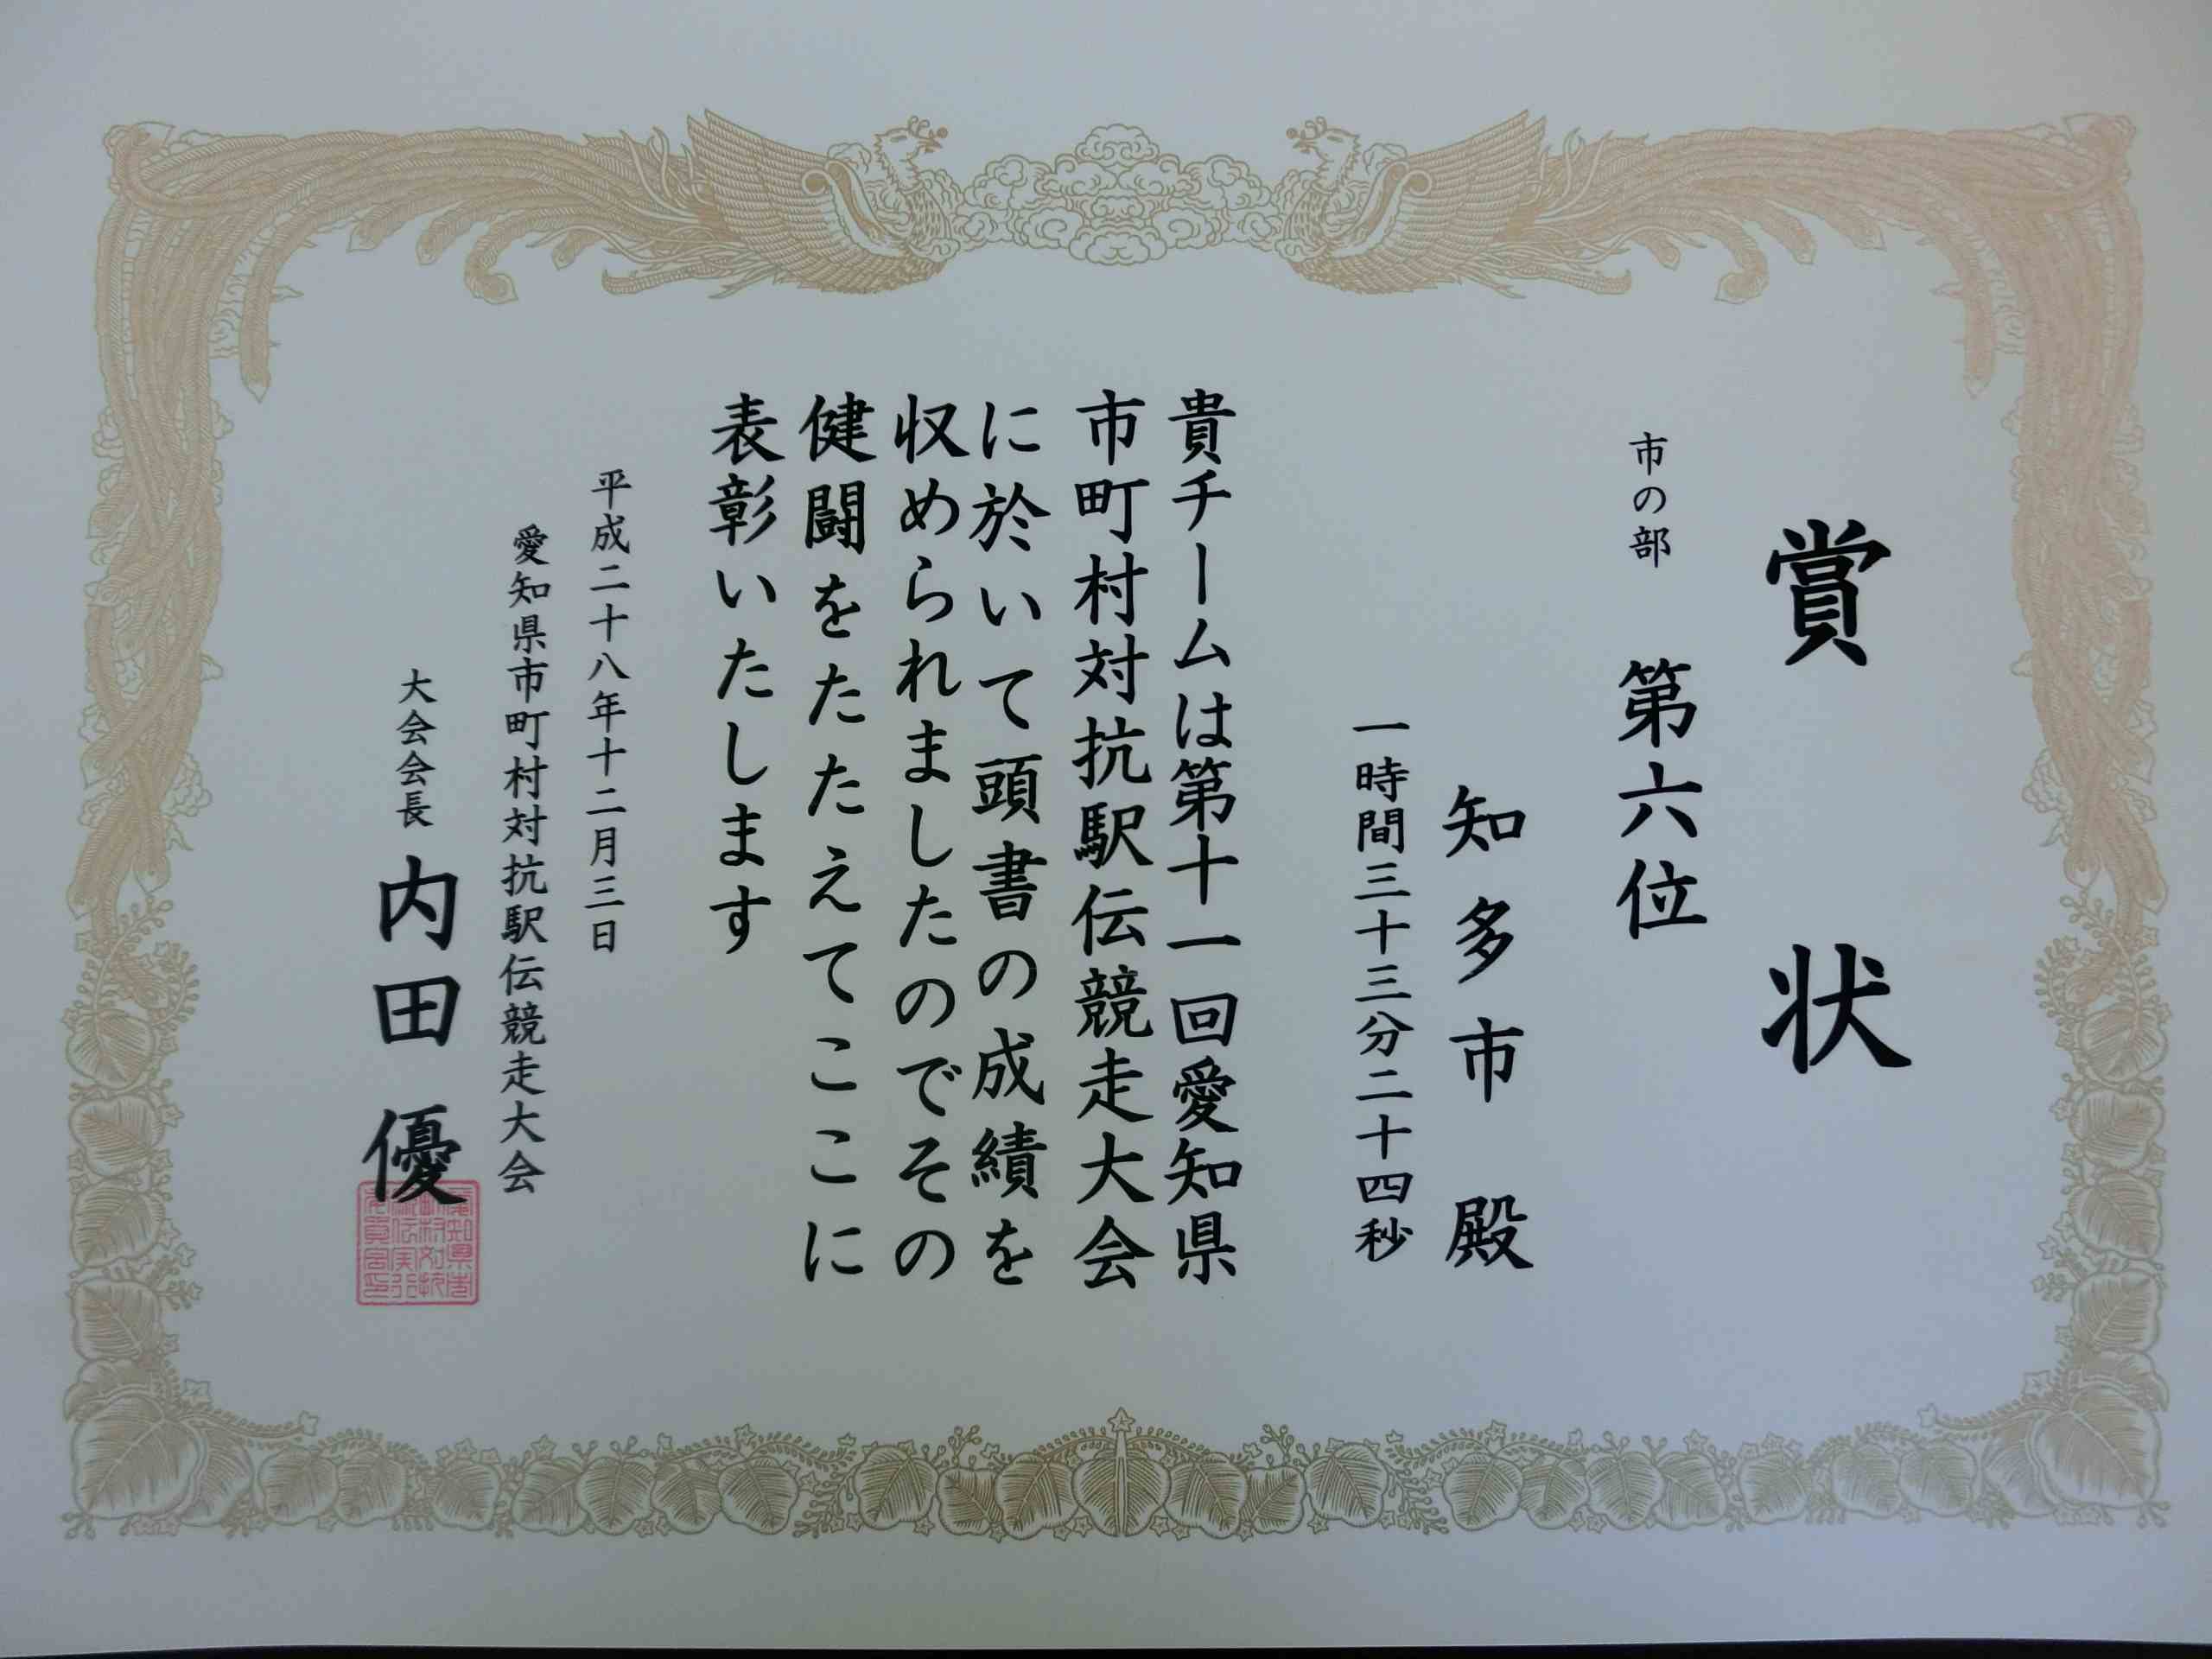 賞状
市の部 第六位
知多市 殿
一時間三十三分二十四秒
貴チームは第十一回愛知県
市町村対抗駅伝競走大会
に於いて頭書の成績を
収められましたのでその
健闘をたたえてここに
表彰いたします
平成二十八年十二月三日
愛知県市町村対抗駅伝競走大会
大会会長 内田優